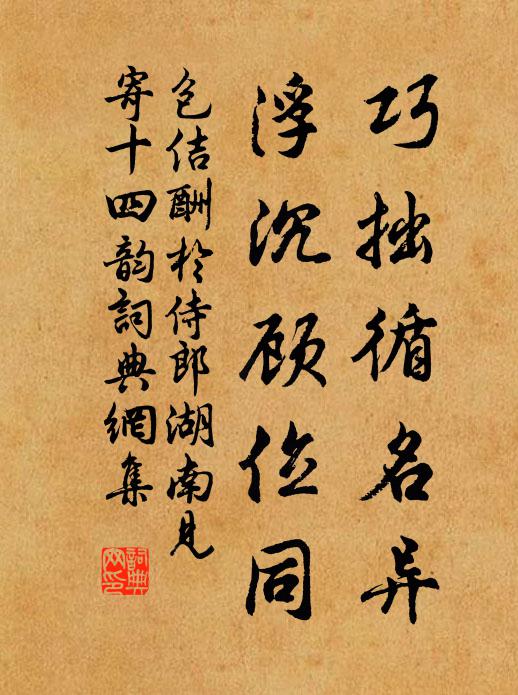 巧拙循名异
浮沉顾位同
包佶酬於侍郎湖南见
寄十四韵詞典網集
詞典
网印